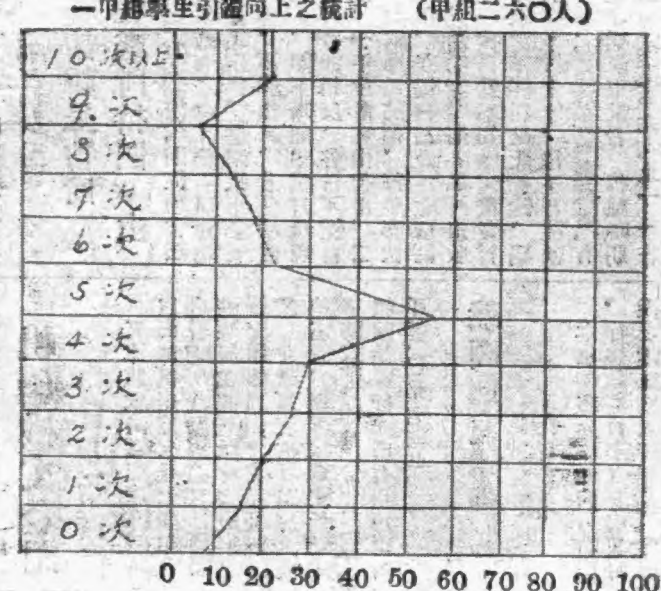 一甲組學生引體向上之統計 (甲組二六〇人)
10次以上
9.次
8次
7.次
6次
5次
4次
3次
2次
1次
0次
0 10 20 30 40 50 60 70 80 90 100